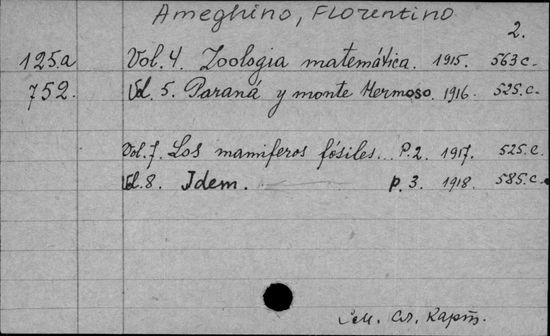 Ameghino, Florentino
2.
125.a Vol. 4. Zoologia matemática. 1915. 563 c.
752. Vol. 5. Paraná y monte Hermoso. 1916. 525.c.
Vol. 7. Los mamiferos fósiles... P. 2. 1917. 525.c.
Vol. 8. Idem. p. 3. 1918. 585.c.
См. сл. карт.